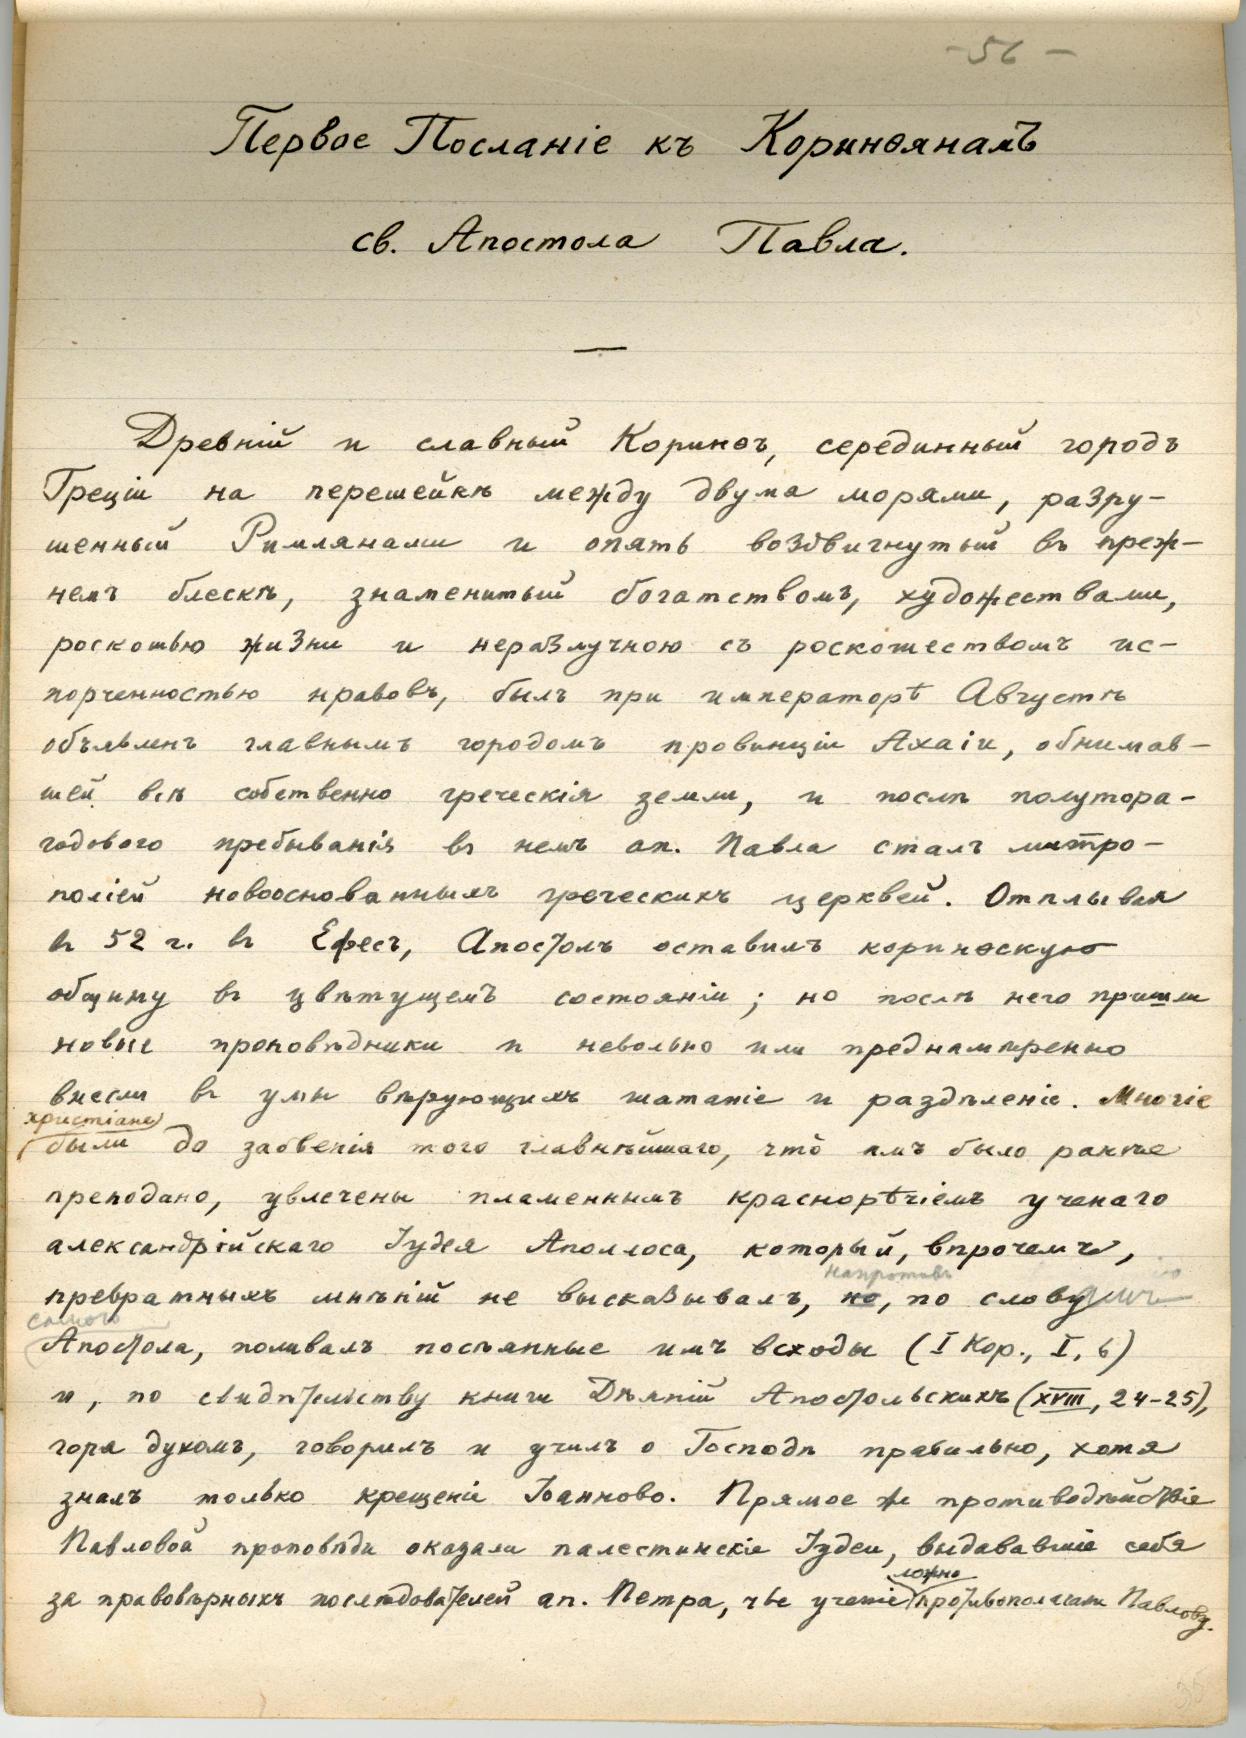 - 56 -
Первое Посланіе къ Коринѳянамъ
св. Апостола Павла.
Древній и славный Коринѳъ, серединный городъ
Греціи на перешейкѣ между двумя морями, разру-
шенный Римлянами и опять воздвигнутый въ преж-
немъ блескѣ, знаменитый богатствомъ, художествами,
роскошью жизни и неразлучною съ роскошествомъ ис-
порченностью нравовъ, былъ при императорѣ Августѣ
объявленъ главнымъ городомъ провинціи Ахаіи, обнимав-
шей всѣ собственно греческія земли, и послѣ полутора-
годового пребыванія въ немъ ап. Павла сталъ митро-
поліей новооснованныхъ греческихъ церквей. Отплывая
въ 52 г. въ Ефесъ, Апостолъ оставилъ коринѳскую
общину въ цвѣтущемъ состояніи; но послѣ него пришли
новые проповѣдники и невольно или преднамѣренно
внесли въ умы вѣрующихъ шатаніе и раздѣленіе. Многіе
христіане
были до забвенія того главнѣйшаго, что́ имъ было ранѣе
преподано, увлечены пламеннымъ краснорѣчіемъ ученаго
александрійскаго Іудея Аполлоса, который, впрочемъ,
напротивъ
превратныхъ мнѣній не высказывалъ, но, по слову
самого
Апостола, поливалъ посѣянные имъ всходы (I Кор., I, 6)
и, по свидѣтельству книги Дѣяній Апостольскихъ (XVIII, 24-25),
горя духомъ, говорилъ и училъ о Господѣ правильно, хотя
зналъ только крещеніе Іоанново. Прямое же противодѣйствіе
Павловой проповѣди оказали палестинскіе Іудеи, выдававшіе себя
ложно
за правовѣрныхъ послѣдователей ап. Петра, чье ученіе противополагали Павлову.
35